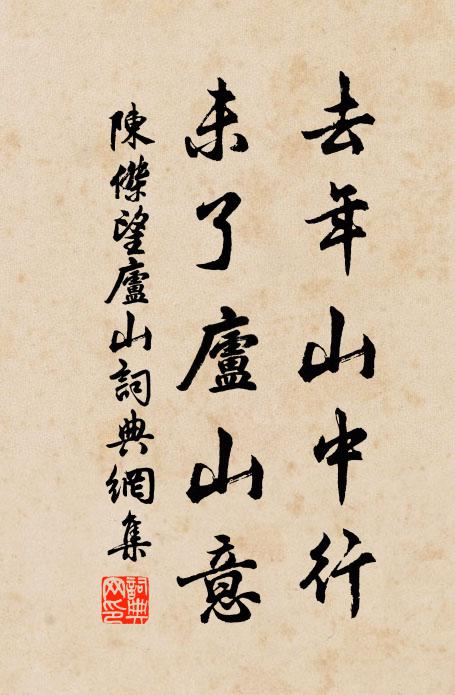 去年山中行
未了廬山意
陳傑望廬山詞典網集
詞典网印